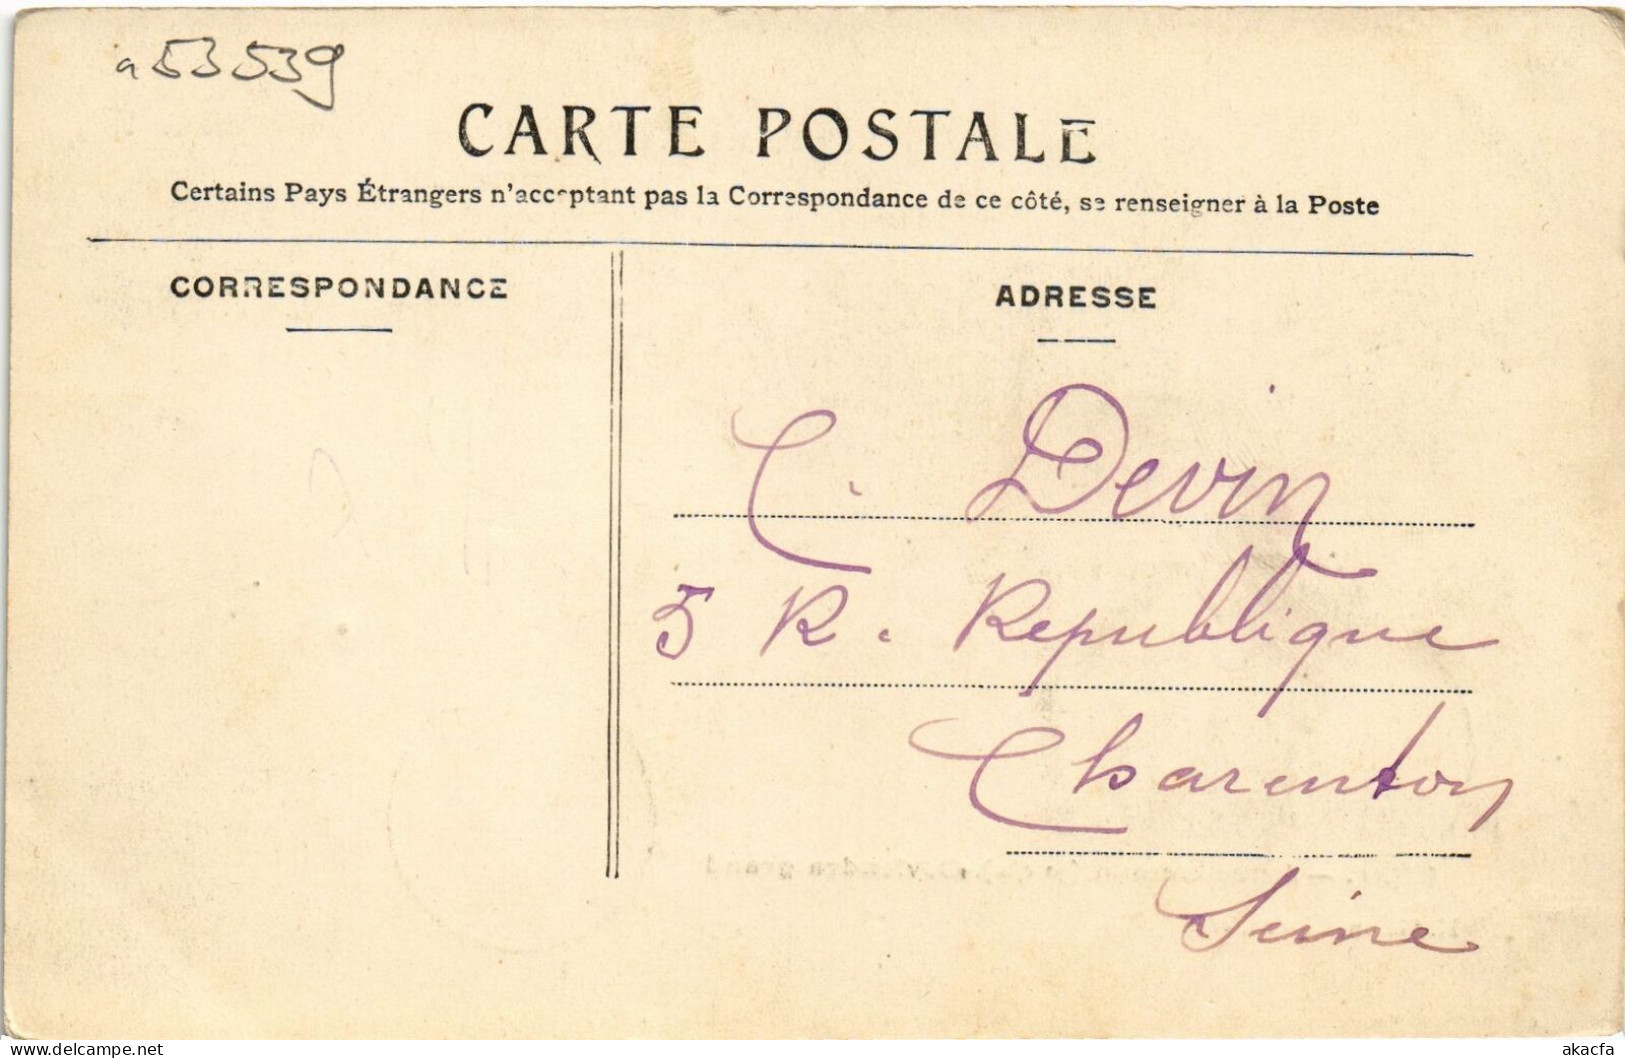 a 53539
CARTE POSTALE
Certains Pays Étrangers n'acceptant pas la Correspondance de ce côté, se renseigner à la Poste
CORRESPONDANCE
ADRESSE
C. Devin
5 R. Republique
Charenton
Seine
www.delcampe.net
akacfa